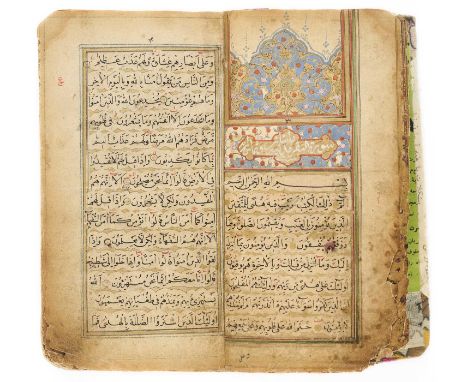 سورة البقرة
بسم الله الرحمن الرحيم
الم ذلك الكتب لا ريب فيه هدى للمتقين
الذين يؤمنون بالغيب ويقيمون الصلوة ومما
رزقنهم ينفقون والذين يؤمنون بما انزل
اليك وما انزل من قبلك وبالاخرة هم يوقنون
اولئك على هدى من ربهم واولئك هم المفلحون ان
الذين كفروا سواء عليهم ءانذرتهم ام لم تنذرهم
لا يؤمنون ختم الله على قلوبهم وعلى سمعهم
وعلى ابصارهم غشاوة ولهم عذاب عظيم
ومن الناس من يقول امنا بالله وباليوم الاخر
وما هم بمؤمنين يخدعون الله والذين امنوا
وما يخدعون الا انفسهم وما يشعرون في قلوبهم
مرض فزادهم الله مرضا ولهم عذاب اليم
بما كانوا يكذبون واذا قيل لهم لا تفسدوا
في الارض قالوا انما نحن مصلحون الا انهم هم
المفسدون ولكن لا يشعرون واذا قيل لهم
امنوا كما امن الناس قالوا انؤمن كما امن السفهاء
الا انهم هم السفهاء ولكن لا يعلمون واذا
لقوا الذين امنوا قالوا امنا واذا خلوا الى شياطينهم
قالوا انا معكم انما نحن مستهزؤن الله
يستهزئ بهم ويمدهم في طغيانهم يعمهون
اولئك الذين اشتروا الضللة بالهدى فما